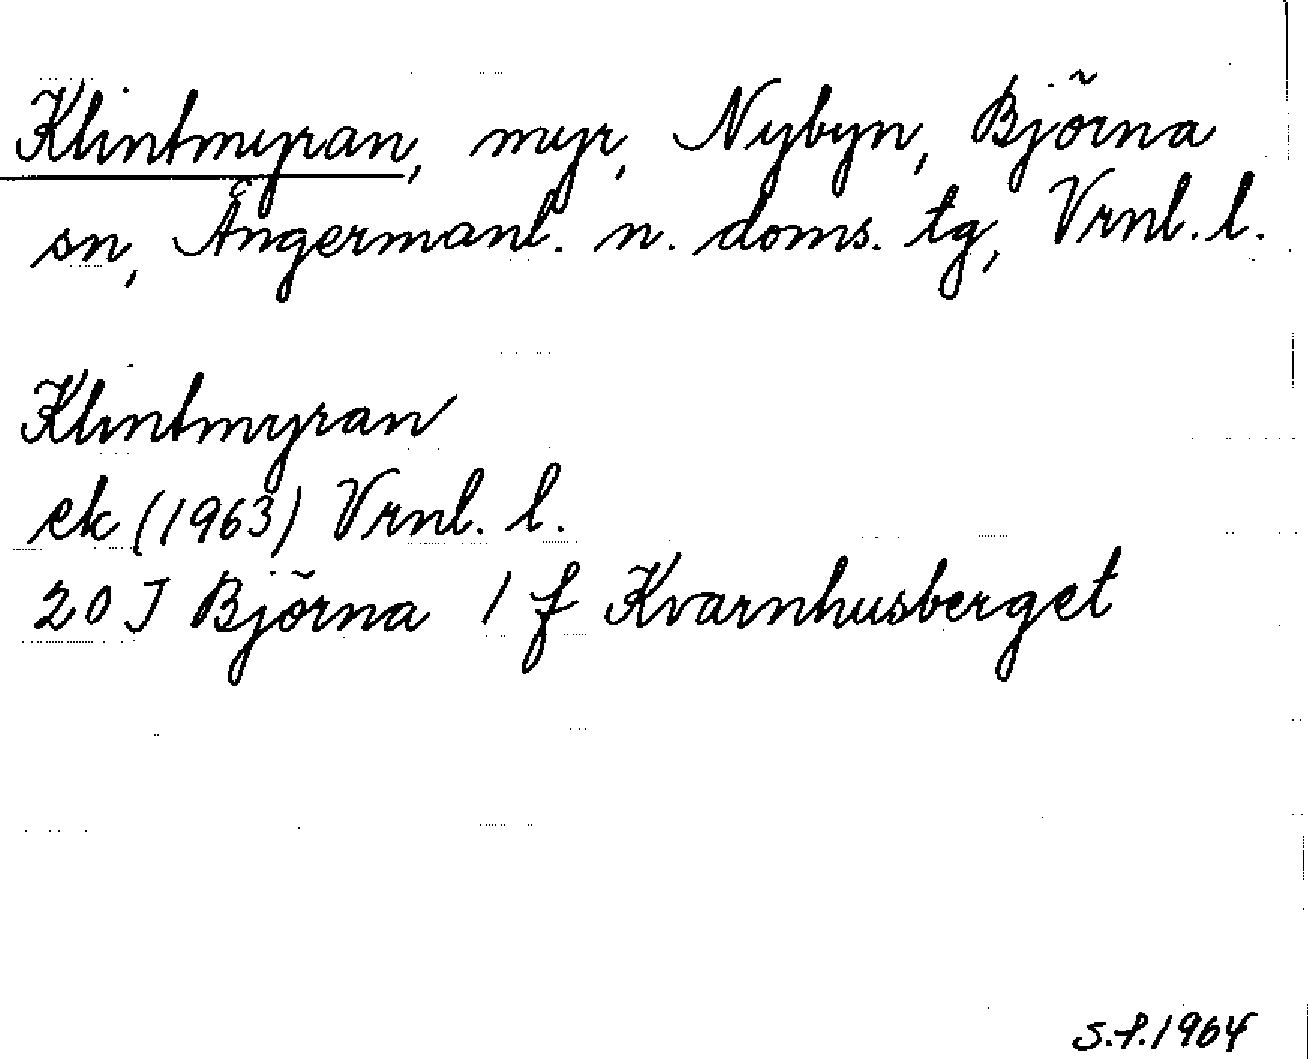 Klintmyran, myr, Nybyn, Björna
sn, Ångermanl. n. doms. tg, Vrnl. l.
Klintmyran
ek (1963) Vrnl. l.
20 J Björna 1 f Kvarnhusberget
S.f.1964